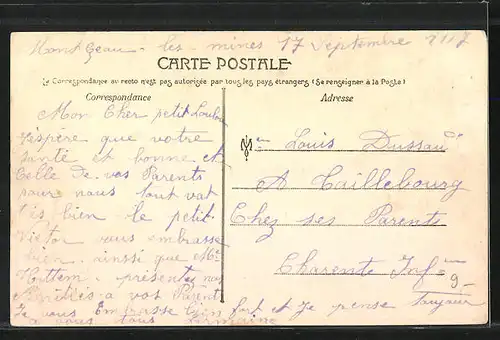 Montceau - les - mines 17 Septembre 1917
CARTE POSTALE
La Correspondance au recto n'est pas autorisée par tous les pays étrangers (Se renseigner à la Poste)
Correspondance
Adresse
Mon Cher petit Loulou
J'éspère que votre
santé et bonne et
Celle de vos Parents
pour nous tout vat
très bien le petit
Victor vous embrasse
bien ainsi que Me
présenter nos
a vos Parent
Je vous Embrasse bien fort et Je pense toujour
a vous tous
M Louis Dussau
A Taillebourg
Chez ses Parents
Charente Infre
9-